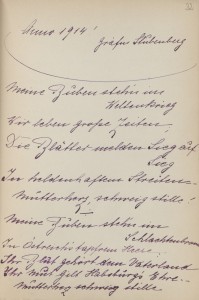 32
Anno 1914!
Gräfin Stubenberg
Meine Buben stehn im
Weltenkrieg
Wir leben große Zeiten!
Die Blätter melden Sieg auf
Sieg
In heldenhaftem Streiten –
Mutterherz, schweig stille!
Meine Buben stehn im
Schlachtensturm
In Östreichs tapferm Heer –
Ihr Blut gehört dem Vaterland
Ihr Mut gilt Habsburgs Ehre –
Mutterherz schweig stille